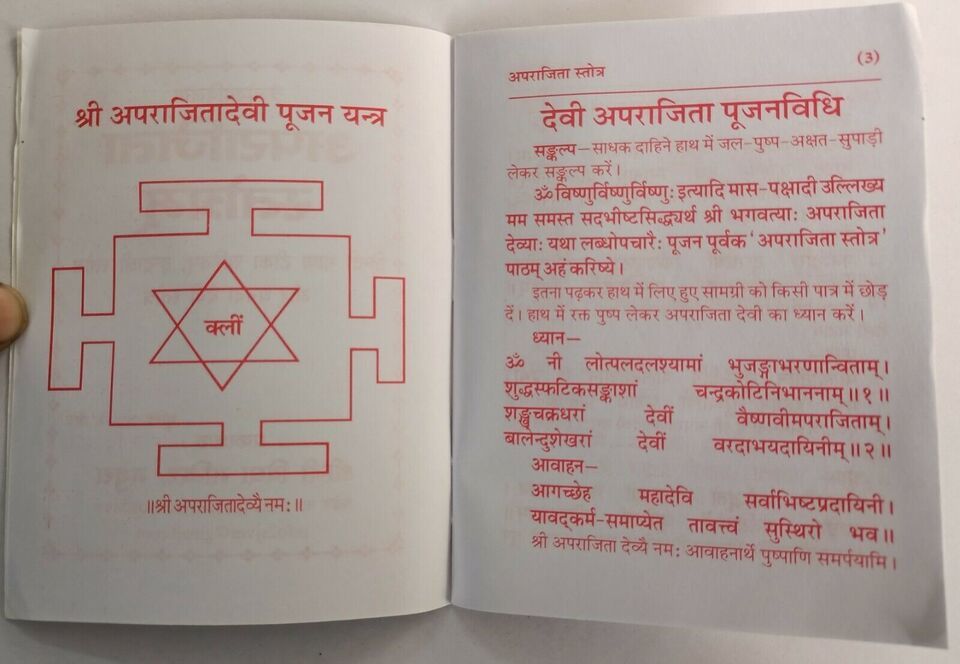 श्री अपराजितादेवी पूजन यन्त्र
क्लीं
॥श्री अपराजितादेव्यै नमः॥
अपराजिता स्तोत्र
(3)
देवी अपराजिता पूजनविधि
सङ्कल्प—साधक दाहिने हाथ में जल-पुष्प-अक्षत-सुपाड़ी
लेकर सङ्कल्प करें।
ॐ विष्णुर्विष्णुर्विष्णुः इत्यादि मास-पक्षादी उल्लिख्य
मम समस्त सदभीष्टसिद्ध्यर्थ श्री भगवत्याः अपराजिता
देव्याः यथा लब्धोपचारैः पूजन पूर्वक 'अपराजिता स्तोत्र'
पाठम् अहं करिष्ये।
इतना पढ़कर हाथ में लिए हुए सामग्री को किसी पात्र में छोड़
दें। हाथ में रक्त पुष्प लेकर अपराजिता देवी का ध्यान करें।
ध्यान—
ॐ नी लोत्पलदलश्यामां भुजङ्गाभरणान्विताम्।
शुद्धस्फटिकसङ्काशां चन्द्रकोटिनिभाननाम्॥१॥
शङ्खचक्रधरां देवीं वैष्णवीमपराजिताम्।
बालेन्दुशेखरां देवीं वरदाभयदायिनीम्॥२॥
आवाहन—
आगच्छेह महादेवि सर्वाभिष्टप्रदायिनी।
यावद्कर्म-समाप्येत तावत्त्वं सुस्थिरो भव॥
श्री अपराजिता देव्यै नमः आवाहनार्थे पुष्पाणि समर्पयामि।